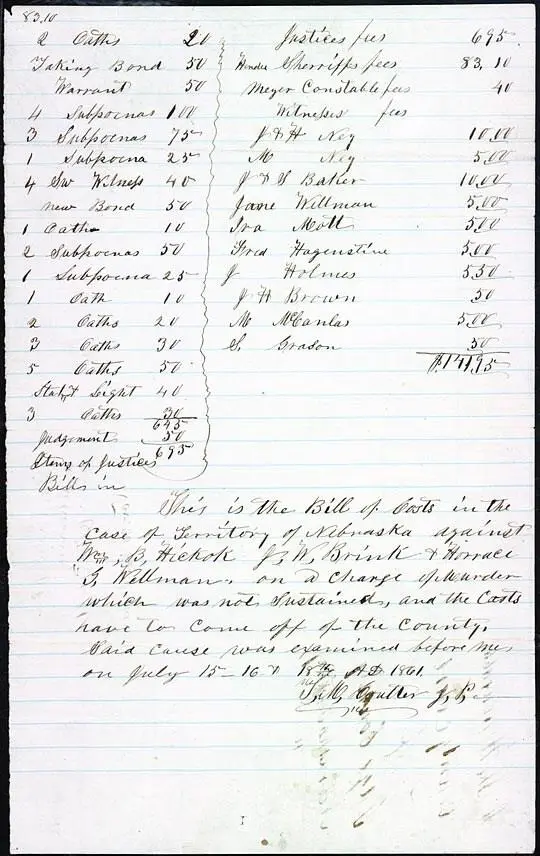 83.10
2 Oaths 20
Taking Bond 50
Warrant 50
4 Subpoenas 1 00
3 Subpoenas 75
1 Subpoena 25
4 Sw Witness 40
new Bond 50
1 Oaths 10
2 Subpoenas 50
1 Subpoena 25
1 Oath 10
2 Oaths 20
3 Oaths 30
5 Oaths 50
40
3 Oaths 30
645
Judgement 50
695
Items of Justices
Bills in
Justices fees 695
Sherriffs fees 83,10
Meyer Constable fees 40
Witnesses fees
J & H Ney 10.00
M Ney 5.00
J & S Baker 10.00
Jane Wellman 5.00
Ira Mott 5.00
Fred Hagenstine 5.00
J Holmes 5.50
J H Brown 50
M McCanlas 5.00
S. Grason 50
$141.95
This is the Bill of Costs in the
case of Territory of Nebraska against
Wm, B, Hickok J, W, Brink & Horrace
G, Wellman, on a charge of Murder
which was not Sustained, and the Costs
have to come off of the County,
Said cause was examined before me
on July 15 - 16 & 18th A D 1861.
T, M, Coulter J, P,